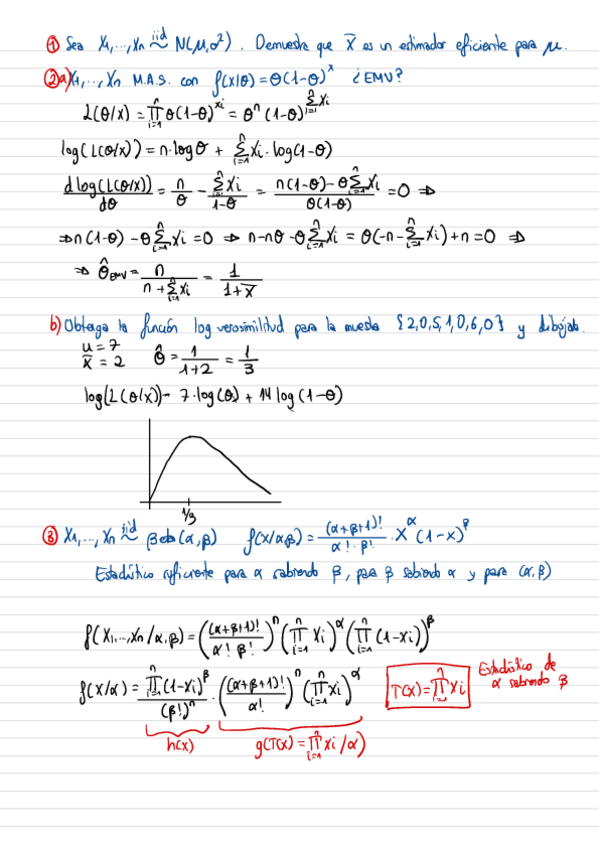 ① Sea X₁,...,Xn iid~ N(μ,σ²). Demuestra que X̄ es un estimador eficiente para μ.
②a) X₁,...,Xn M.A.S. con f(x|θ)=θ(1-θ)^x ¿EMV?
L(θ/x) = ∏_{i=1}^n θ(1-θ)^{xi} = θ^n (1-θ)^{∑_{i=1}^n xi}
log(L(θ/x)) = n·logθ + ∑_{i=1}^n xi·log(1-θ)
d log(L(θ/x))/dθ = n/θ - ∑_{i=1}^n xi/(1-θ) = (n(1-θ)-θ∑_{i=1}^n xi)/(θ(1-θ)) = 0 ⇒
⇒ n(1-θ) - θ∑_{i=1}^n xi = 0 ⇒ n-nθ-θ∑_{i=1}^n xi = θ(-n-∑_{i=1}^n xi)+n = 0 ⇒
⇒ θ̂_EMV = n/(n+∑_{i=1}^n xi) = 1/(1+x̄)
b) Obtenga la función log verosimilitud para la muestra {2,0,5,1,0,6,0} y dibújala.
n = 7
x̄ = 2 θ̂ = 1/(1+2) = 1/3
log(L(θ/x)) = 7·log(θ) + 14 log(1-θ)
1/3
③ X₁,...,Xn iid~ βeta(α,β) f(x/α,β) = (α+β+1)!/(α!·β!) · X^α (1-x)^β
Estadístico suficiente para α sabiendo β, para β sabiendo α y para (α,β)
f(X₁,...,Xn/α,β) = ((α+β+1)!/(α! β!))^n (∏_{i=1}^n Xi)^α (∏_{i=1}^n (1-xi))^β
f(x/α) = ∏_{i=1}^n (1-xi)^β/(β!)^n · ((α+β+1)!/α!)^n (∏_{i=1}^n xi)^α T(x)=∏_{i=1}^n xi Estadístico de α sabiendo β
h(x) g(T(x)=∏_{i=1}^n xi/α)